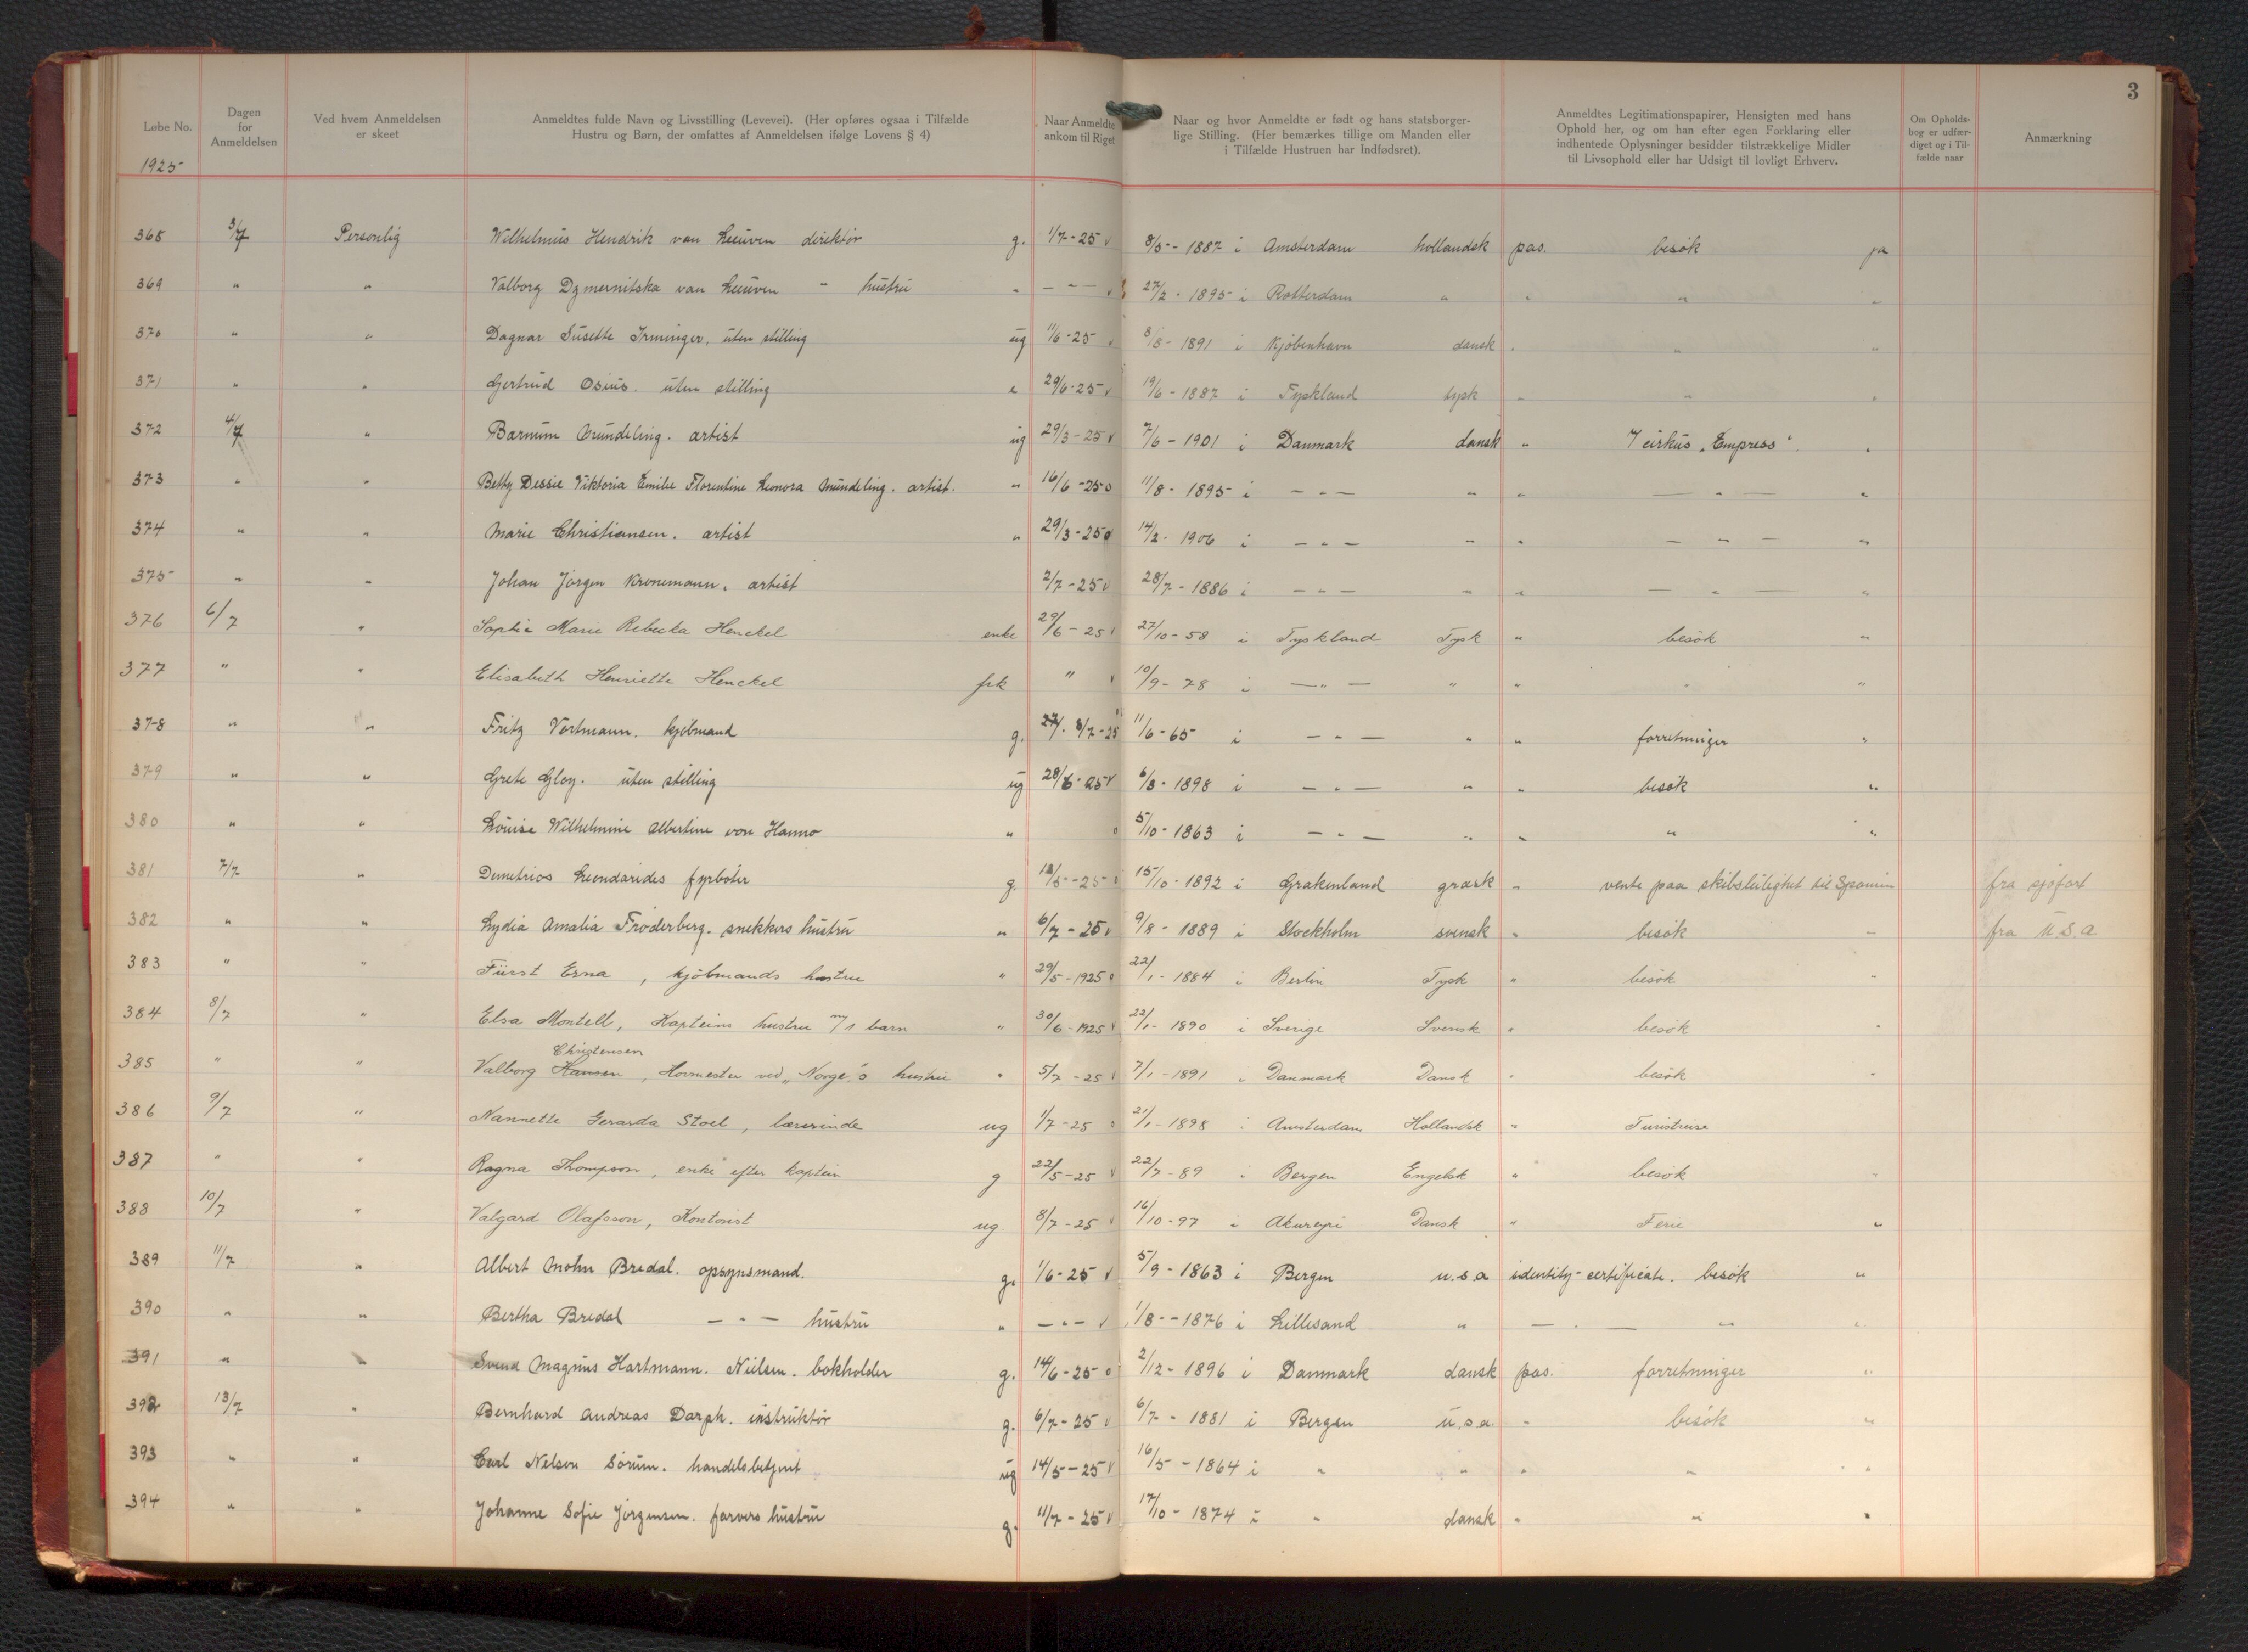 3
Løbe No.
Dagen for Anmeldelsen
Ved hvem Anmeldelsen er skeet
Anmeldtes fulde Navn og Livsstilling (Levevei). (Her opføres ogsaa i Tilfælde Hustru og Børn, der omfattes af Anmeldelsen ifølge Lovens § 4)
Naar Anmeldte ankom til Riget
Naar og hvor Anmeldte er født og hans statsborgerlige Stilling. (Her bemærkes tillige om Manden eller i Tilfælde Hustruen har Indfødsret).
Anmeldtes Legitimationspapirer, Hensigten med hans Ophold her, og om han efter egen Forklaring eller indhentede Oplysninger besidder tilstrækkelige Midler til Livsophold eller har Udsigt til lovligt Erhverv.
Om Opholdsbog er udfærdiget og i Tilfælde naar
Anmærkning
1925
368 3/7 Personlig Wilhelmus Hendrik van Leeuven direktør g. 1/7-25 v 8/5-1887 i Amsterdam hollandsk pas. besøk ja
369 " " Valborg Dzmernitska van Leeuven " hustru " - " - 27/2-1895 i Rotterdam " " " "
370 " " Dagnar Susette Irminger. uten stilling ug 11/6-25 v 8/8-1891 i Kjøbenhavn dansk " " "
371 " " Gertrud Osius. uten stilling " 29/6-25 v 19/6-1887 i Tyskland tysk " " "
372 4/7 " Barnum Mündeling. artist ug 29/3-25 v 7/6-1901 i Danmark dansk " I cirkus "Empress". "
373 " " Betty Dessie Viktoria Emilie Florentine Leonora Mündeling. artist. " 16/6-25 o 11/8-1895 i - " - " " - " - "
374 " " Marie Christiansen. artist " 29/3-25 o 14/2-1906 i - " - " " - " - "
375 " " Johan Jørgen Kronemann. artist 2/7-25 v 28/7-1886 i - " - " " - " - "
376 6/7 " Sophie Marie Rebecka Henckel enke 29/6-25 v 27/10-58 i Tyskland Tysk " besøk "
377 " " Elisabeth Henriette Henckel frk " v 10/9-78 i - " - " " " "
378 " " Fritz Vortmann. kjøbmand g. 8/7-25 11/6-65 i - " - " " forretninger "
379 " " Grete Gloy. uten stilling ug 28/6-25 v 6/3-1898 i - " - " " besøk "
380 " " Louise Wilhelmine Albertine von Hanno " o 5/10-1863 i - " - " " " "
381 7/7 " Demetrios Leondarides fyrbøter g. 18/5-25 o 15/10-1892 i Grækenland græsk " vente paa skibsleilighet til Spanien fra sjøfart
382 " " Lydia Amalia Frøderberg. snekkers hustru " 6/7-25 v 9/8-1889 i Stockholm svensk " besøk " fra U.S.A.
383 " " Fürst Erna, kjøbmands hustru " 29/5-1925 o 22/1-1884 i Berlin Tysk " besøk "
384 8/7 " Elsa Montell, Kapteins hustru m/1 barn " 30/6-1925 v 22/1-1890 i Sverige Svensk " besøk "
Christensen
385 " " Valborg Hansen, Hovmester ved "Norge"s hustru " 5/7-25 v 7/1-1891 i Danmark Dansk " besøk "
386 9/7 " Nannette Gerarda Stoel, lærerinde ug 1/7-25 o 21/1-1898 i Amsterdam Hollandsk " Turistreise
387 " " Ragna Thompson, enke efter kaptein g 22/5-25 v 22/7-89 i Bergen Engelsk " besøk "
388 10/7 " Valgard Olafsson, Kontorist ug. 8/7-25 v 16/10-97 i Akureyri Dansk " Ferie "
389 11/7 " Albert Mohn Bredal. opsynsmand. g. 1/6-25 v 5/9-1863 i Bergen u.s.a identity-certificate. besøk "
390 " " Bertha Bredal - " - hustru " - " - v 1/8-1876 i Lillesand " - " - " "
391 " " Svend Magnus Hartmann. Nielsen. bokholder g. 14/6-25 o 2/12-1896 i Danmark dansk pas. forretninger "
392 13/7 " Bernhard Andreas Darph. instruktør g. 6/7-25 v 6/7-1881 i Bergen u.s.a. " besøk "
393 " " Carl Nelson Sørum. handelsbetjent ug 14/5-25 v 16/5-1864 i " " " " "
394 " " Johanne Sofie Jørgensen. farvers hustru g. 11/7-25 v 17/10-1874 i " dansk " " "